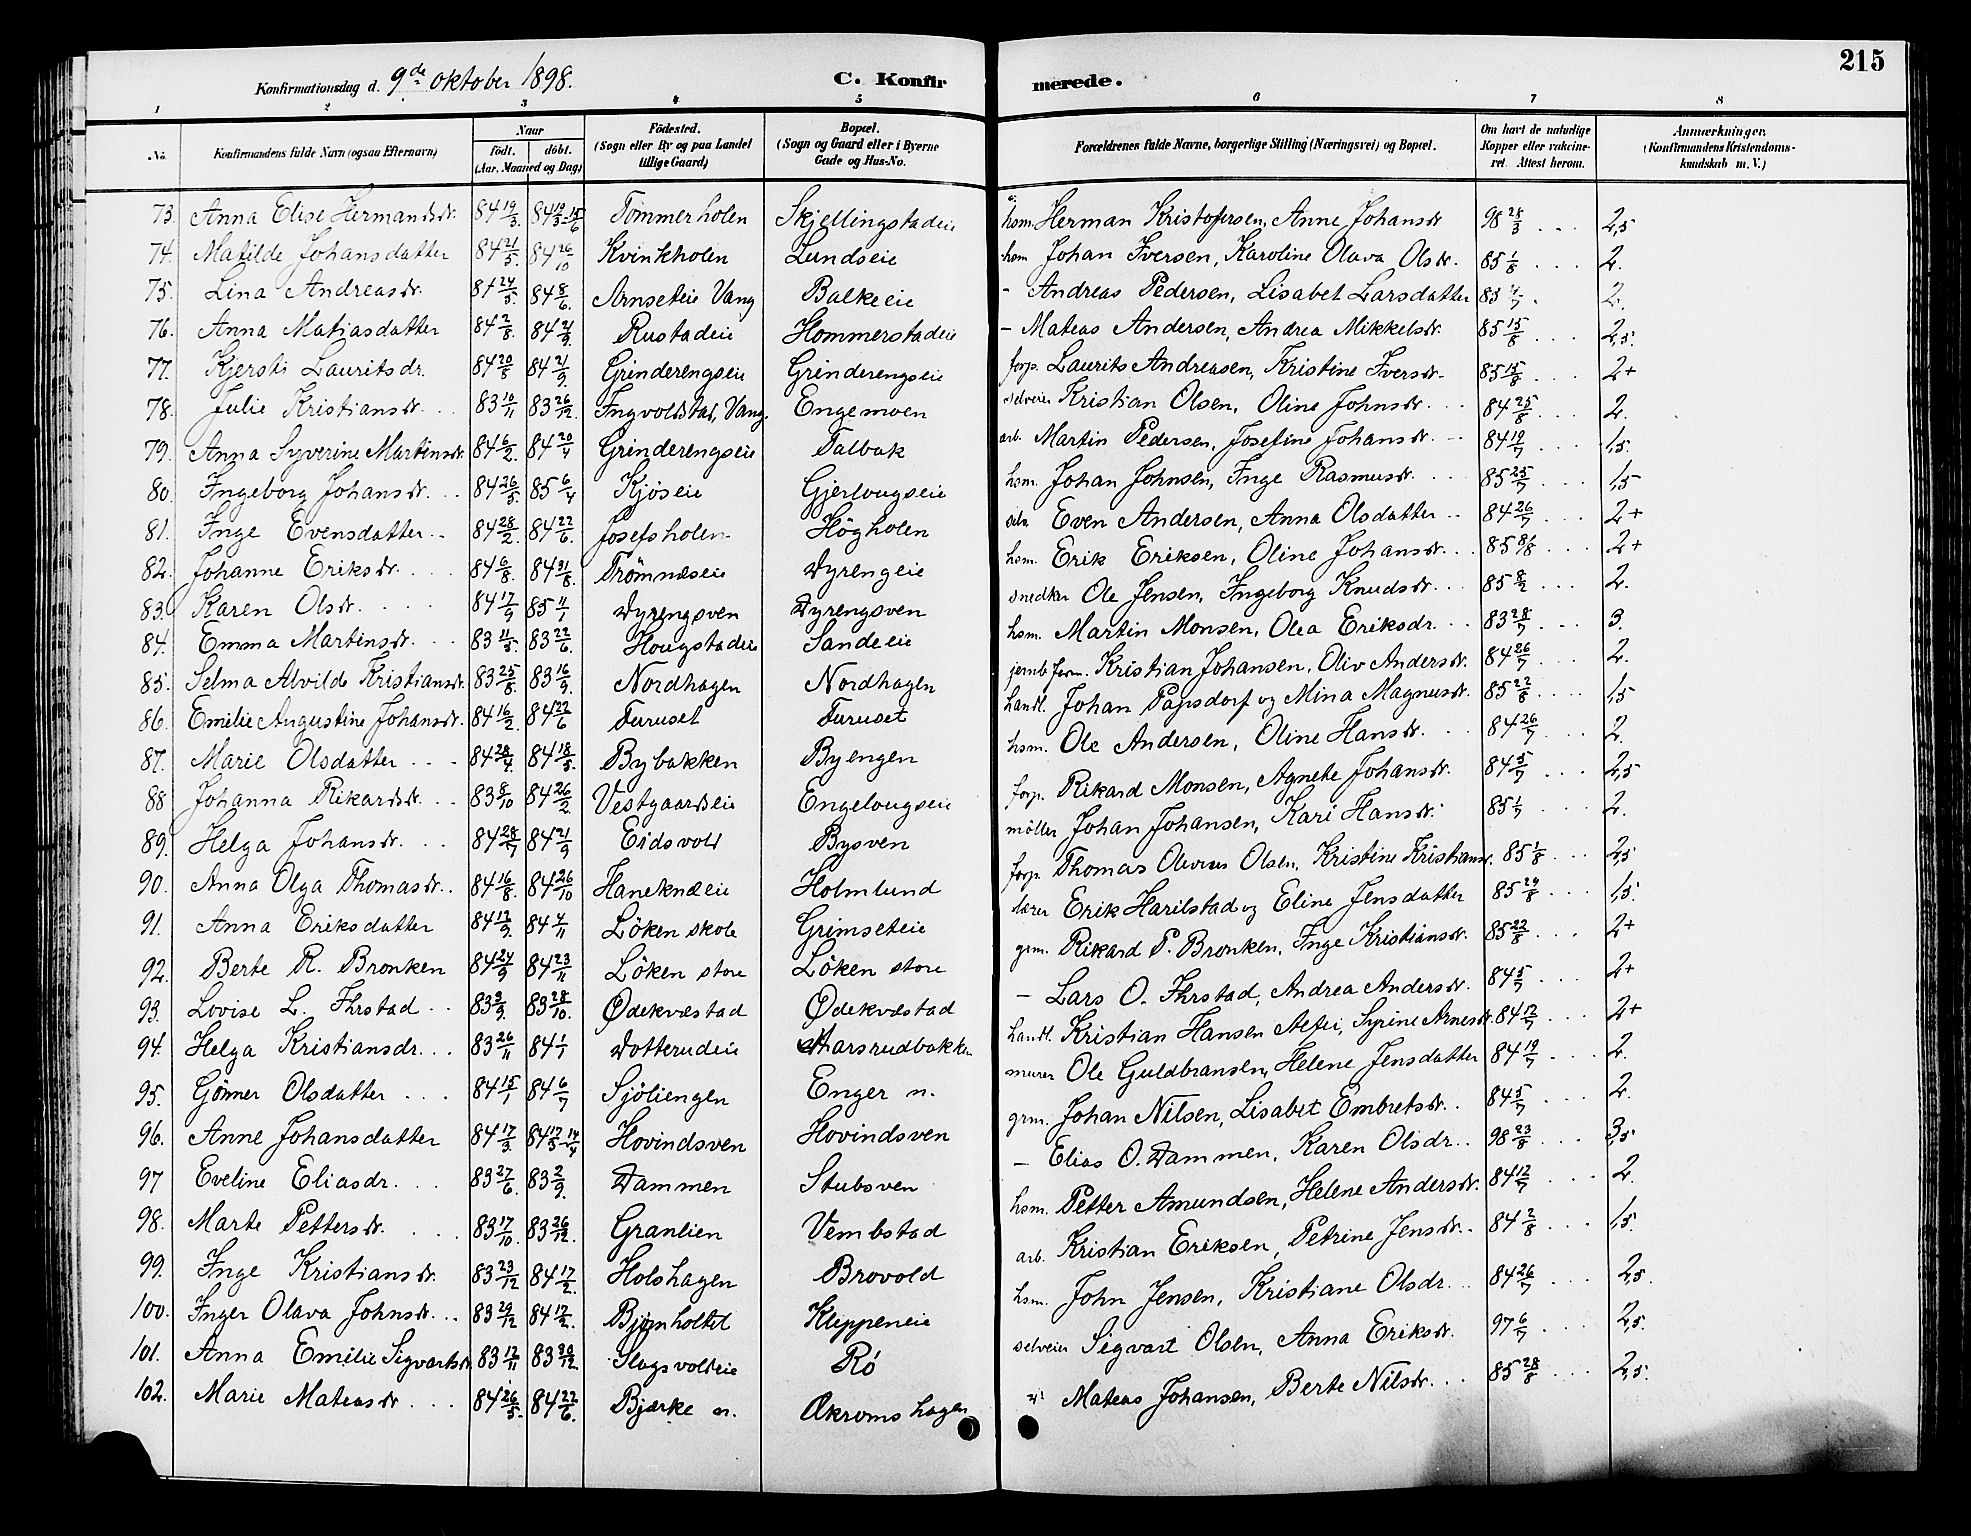 215
Konfirmationsdag d. 9de oktober 1898. C. Konfirmerede.
1 2 3 4 5 6 7 8
No. Konfirmandens fulde Navn (ogsaa Efternavn) Naar födt. döbt. (Aar, Maaned og Dag) Födested. (Sogn eller By og paa Landet tillige Gaard) Bopæl. (Sogn og Gaard eller i Byerne Gade og Hus-No. Forældrenes fulde Navne, borgerlige Stilling (Næringsvei) og Bopæl. Om havt de naturlige Kopper eller vakcineret. Attest herom. Anmærkninger. (Konfirmandens Kristendomskundskab m. V.)
73. Anna Elise Hermandsdr. 84 19/3. 84 19/3-15/6 Tömmerholen Skjellingstadeie hsm. Herman Kristofersen, Anne Johansdr 98 28/3 ... 2,5
74. Matilde Johansdatter 84 21/5. 84 26/10 Kvinkholen Lundseie hsm Johan Iversen, Karoline Olava Olsdr. 85 1/8 ... 2.
75. Lina Andreasdr. 84 24/5 84 8/6. Arnseteie Vang Balkeeie - Andreas Pedersen, Lisabet Larsdatter 2.
76. Anna Matiasdatter 84 2/8. 84 21/9. Rustadeie Hommerstadeie - Mateas Andersen, Andrea Mikkelsdr. 85 15/8 ... 2,5.
77. Kjersti Lauritsdr. 84 20/8 84 21/9. Grinderengseie Grinderengseie forp. Laurits Andreasen, Kristine Iversdr. 85 15/8 ... 2+
78. Julie Kristiansdr. 83 10/11 83 26/12. Ingvoldstad, Vang. Engemoen selveier Kristian Olsen, Oline Johnsdr. 84 25/8 ... 2.
79. Anna Syverine Martinsdr 84 6/2. 84 20/4 Grinderengseie Talbak arb. Martin Pedersen, Josefine Johansdr. 84 19/7 ... 1,5.
80. Ingeborg Johansdr. 84 26/5. 85 6/4 Kjöseie Gjerlougseie hsm. Johan Johnsen, Inge Rasmusdr. 85 25/7 ... 1,5
81. Inge Evensdatter 84 28/2. 84 22/6. Josefsholen Högholen Even Andersen, Anna Olsdatter 84 26/7 ... 2+
82. Johanne Eriksdr. 84 6/8. 84 31/8. Trömnæseie Dyrengeie hsm. Erik Eriksen, Oline Johansdr. 85 ... 2+
83. Karen Olsdr. 84 17/9 85 11/1 Dyrengsven Dyrengsven snedker Ole Jensen, Ingeborg Knudsdr. 85 8/2 ... 2.
84. Emma Martinsdr. 83 11/5. 83 22/6. Hougstadeie Sandeeie hsm. Martin Monsen, Olea Eriksdr. 83 28/7 ... 3.
85. Selma Alvilde Kristiansdr. 83 25/8 83 16/9. Nordhagen Nordhagen jernb.form. Kristian Johansen, Oliv Andersdr. 84 26/7 ... 2.
86. Emelie Augustine Johansdr. 84 16/2 84 22/6 Furuset Furuset handl. Johan Papsdorf og Mina Magnusdr. 85 22/8 ... 1,5
87. Marie Olsdatter 84 28/4. 84 18/5. Bybakken Byengen hsm. Ole Andersen, Oline Hansdr. 84 26/7 ... 2.
88 Johanna Rikardsdr. 83 8/10 84 26/2 Vestgaardseie Engelougseie forp. Rikard Monsen, Agnete Johansdr. 84 5/7 ... 2,5
89. Helga Johansdr. 84 28/7 84 21/9 Eidsvold Bysven möller Johan Johansen, Kari Hansdr. 85 1/7 ... 2.
90. Anna Olga Thomasdr. 84 16/8. 84 26/10 Haneknæeie Holmlund forp. Thomas Olsen, Kristine Kristiansdr. 85 1/8 ... 2,5
91. Anna Eriksdatter 84 12/9. 84 4/11 Löken skole Grimseteie lærer Erik Harilstad og Eline Jensdatter 85 24/8 ... 1,5.
92. Berte R. Bronken 84 24/9 84 23/11 Löken store Löken store grm. Rikard P. Bronken, Inge Kristiansdr. 85 22/8 ... 2+
93. Lovise L. Ihrstad 83 3/9. 83 28/10. Ødekvæstad Ødekvæstad - Lars O. Ihrstad, Andrea Andersdr. 84 5/7 ... 2+
94. Helga Kristiansdr. 83 26/11 84 1/1 Dotterudeie Aarsrudbakken handl. Kristian Hansen Syrine Arnesdr. 84 12/7 ... 2+
95. Gönner Olsdatter 84 15/1 84 6/7 Sjöliengen Enger n. murer Ole Guldbransen, Helene Jensdatter 84 19/7 ... 2.
96. Anne Johansdatter 84 17/3. 84 17/3-14/4 Hovindsven Hovindsven grm. Johan Nilsen, Lisabet Embretsdr. 84 5/7 ... 2.
97 Eveline Eliasdr. 83 27/6. 83 2/9. Dammen Stubsven - Elias O. Dammen, Karen Olsdr. 98 23/8 ... 3,5
98. Marte Pettersdr. 83 17/10 83 26/12. Granlien Vembstad hsm. Petter Amundsen, Helene Andersdr. 84 12/7 ... 2.
99. Inge Kristiansdr. 83 23/12 84 17/2. Holshagen Brovold arb. Kristian Eriksen, Petrine Jensdr. 84 2/8 ... 1,5.
100. Inger Olava Johnsdr. 83 29/12 84 17/2. Bjørnholtet Kleppeneie hsm. John Jensen, Kristiane Olsdr. 84 26/7 ... 2,5.
101. Anna Emelie Sigvartsdr 83 17/11 83 30/12. Slagsvoldeie Rö selveier Sigvart Olsen, Anna Eriksdr. 97 6/7 ... 2,5.
102. Marie Mateasdr 84 26/5. 84 22/6. Bjærke n. Akromshagen Mateas Johansen, Berte Nilsdr. 85 28/8 ... 2,5.